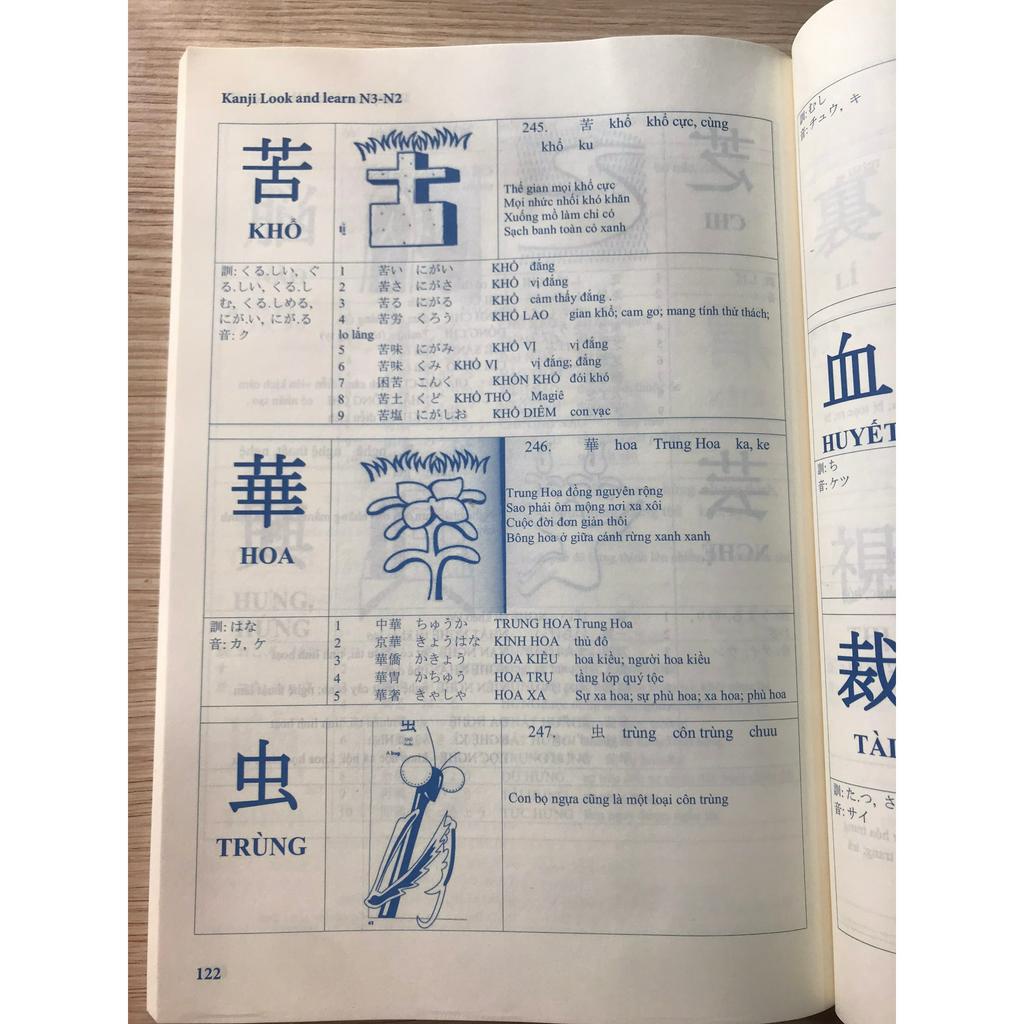 Kanji Look and learn N3-N2
苦
KHỔ
245. 苦 khổ khổ cực, cùng
khổ ku
Thế gian mọi khổ cực
Mọi nhức nhối khó khăn
Xuống mồ làm chi có
Sạch banh toàn cỏ xanh
訓: くる.しい, ぐ
る.しい, くる.し
む, くる.しめる,
にが.い, にが.る
音: ク
1 苦い にがい KHỔ đắng
2 苦さ にがさ KHỔ vị đắng
3 苦る にがる KHỔ cảm thấy đắng .
4 苦労 くろう KHỔ LAO gian khổ; cam go; mang tính thử thách;
lo lắng
5 苦味 にがみ KHỔ VỊ vị đắng
6 苦味 くみ KHỔ VỊ vị đắng; đắng
7 困苦 こんく KHỐN KHỔ đói khó
8 苦土 くど KHỔ THỔ Magiê
9 苦塩 にがしお KHỔ DIÊM con vạc
華
HOA
246. 華 hoa Trung Hoa ka, ke
Trung Hoa đồng nguyên rộng
Sao phải ôm mộng nơi xa xôi
Cuộc đời đơn giản thôi
Bông hoa ở giữa cánh rừng xanh xanh
訓: はな
音: カ, ケ
1 中華 ちゅうか TRUNG HOA Trung Hoa
2 京華 きょうはな KINH HOA thủ đô
3 華僑 かきょう HOA KIỀU hoa kiều; người hoa kiều
4 華冑 かちゅう HOA TRỤ tầng lớp quý tộc
5 華奢 きゃしゃ HOA XA Sự xa hoa; sự phù hoa; xa hoa; phù hoa
虫
TRÙNG
虫
247. 虫 trùng côn trùng chuu
Con bọ ngựa cũng là một loại côn trùng
122
訓: むし
音: チュウ, キ
血
HUYẾT
訓: ち
音: ケツ
裁
TÀI
訓: た.つ, さ
音: サイ